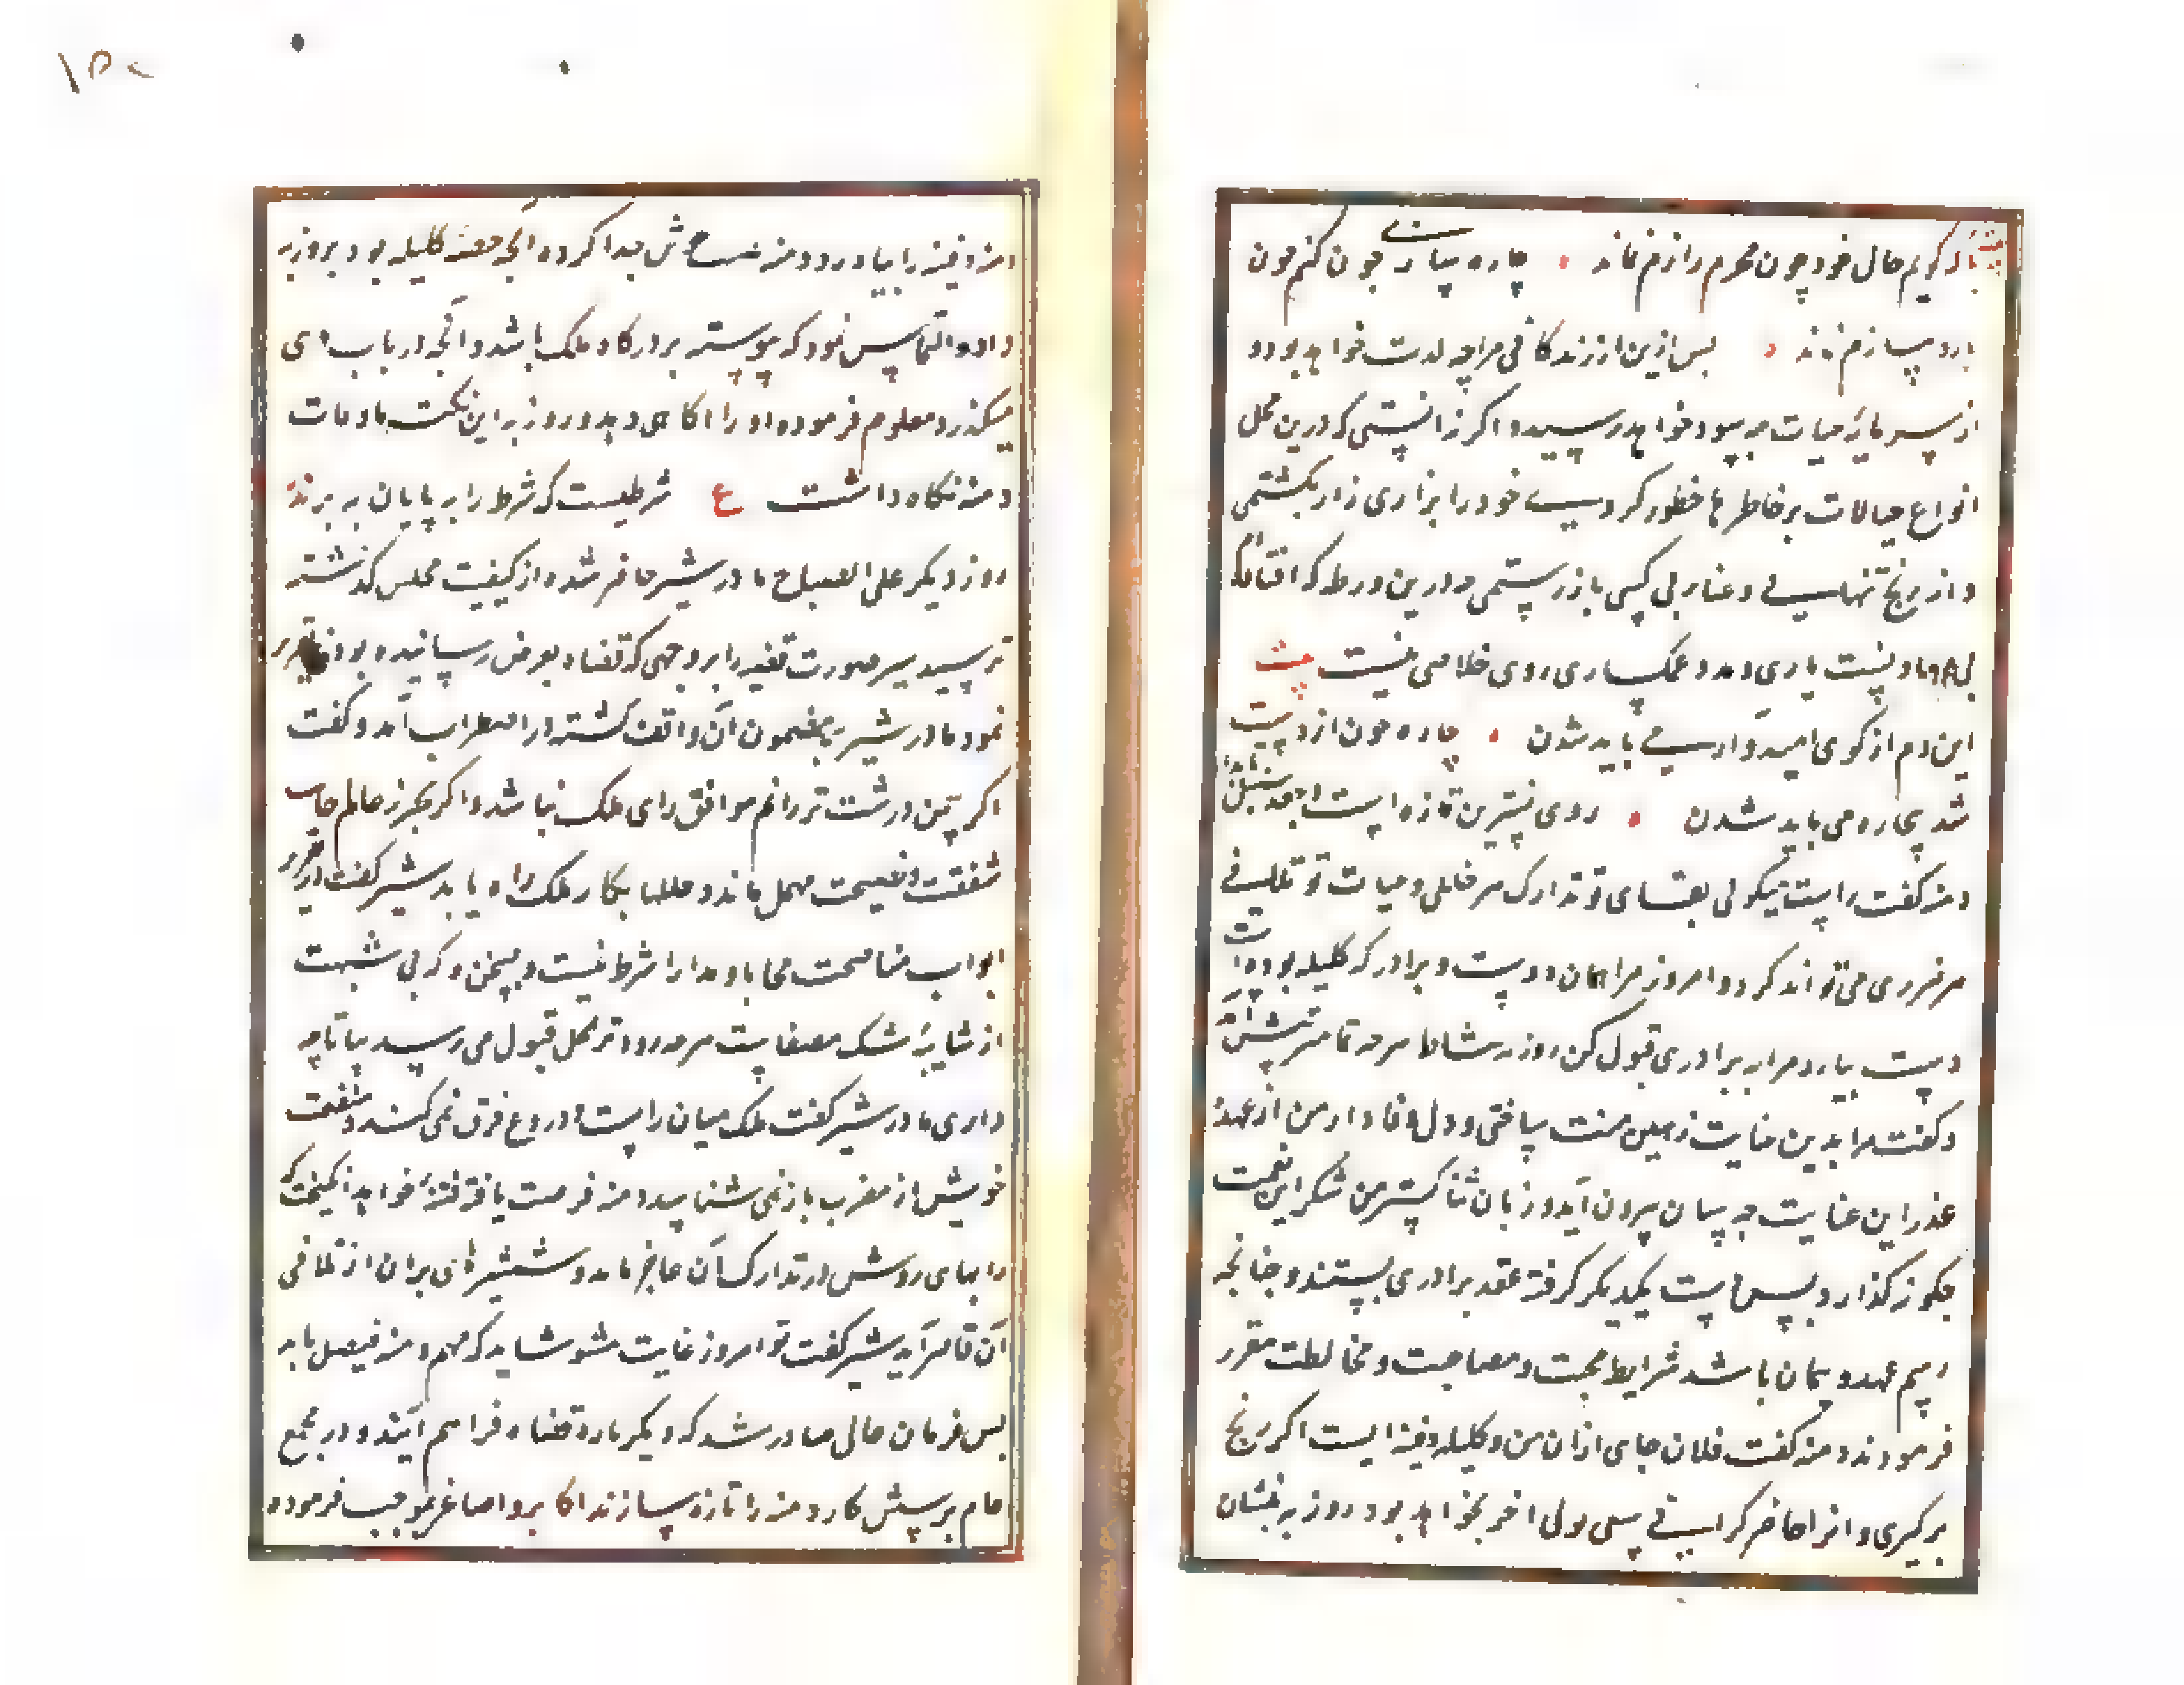 با که گویم حال خود چون محرم رازم نماند چاره سازی چون کنم چون
یار دمسازم نماند پس ازین از زندگانی مرا چه لذت خواهد بود و
از سرمایهٔ حیات چه سود خواهد رسید و اگر نه آنستی که درین محل
انواع خیالات بر خاطرها خطور کردی خود را بزاری زار بکشتمی
و از رنج تنهایی و عناء بی کسی باز رستمی و درین ورطه که افتاده‌ام
بی امداد نیست یاری و مدد غمگساری روی خلاصی نیست بیت
این دم از کوی امید آواره می باید شدن چاره چون از دست
شد بیچاره می باید شدن روی نسترن تازه است
دمنه گفت راست میگویی بقای تو تدارک هر خللی و حیات تو تلافی
هر ضرری می تواند کرد و امروز مرا همان دوست و برادر که کلیله بوده
دست بیار و مرا به برادری قبول کن روزبه نشاط هرچه تمامتر پیش آمد
و گفت مرا بدین عنایت رهین منت ساختی و دل وفادار من از عهدهٔ
عذر این عنایت چه سان بیرون آید و زبان ثنا گستر من شکر این نعمت
چگونه گذارد پس دست یکدیگر گرفته عقد برادری ببستند و چنانچه
رسم عهد و پیمان باشد شرایط محبت و مصاحبت و مخالطت مقرر
فرمودند دمنه گفت فلان جای ازان من و کلیله دفینه ایست اگر رنج
برگیری و آنرا حاضر گردانی سعی تو بی اجر نخواهد بود روزبه بنشان
دمنه دفینه را بیاورد و دمنه حصهٔ خویش جدا کرده آنچه حصهٔ کلیله بود بروزبه
داد و التماس نمود که پیوسته بر درگاه ملک باشد و آنچه در باب وی
میگذرد معلوم فرموده او را آگاهی دهد و روزبه این نکته تا وفات
دمنه نگاه داشت ع شرطیست که شرط را به پایان ببرند
روز دیگر علی الصباح مادر شیر حاضر شده از کیفیت مجلس گذشته
پرسید شیر صورت قضیه را بر وجهی که قضاة بعرض رسانیده بودند تقریر
نمود مادر شیر بمضمون آن واقف گشته در اضطراب آمد و گفت
اگر سخن درشت تر رانم موافق رای ملک نباشد و اگر تحرز نمایم جانب
شفقت و نصیحت مهمل ماند و خللها بکار ملک راه یابد شیر گفت در تقریر
ابواب مناصحت محابا و مدارا شرط نیست و سخن تو که بی شبهت
از شایبهٔ شک مصفاست هرچه زودتر بمحل قبول می رسد بیا تا چه
داری مادر شیر گفت ملک میان راست و دروغ فرق نمی کند و منفعت
خویش از مضرت باز نمی شناسد و دمنه فرصت یافته فتنهٔ خواهد انگیخت که
رایهای روشن در تدارک آن عاجز ماند و شمشیرهای بران از تلافی
آن قاصر آید شیر گفت تو امروز غایب مشو شاید که مهم دمنه فیصل یابد
پس فرمان عالی صادر شد که دیگر باره قضاة فراهم آیند و در مجمع
عام پرسش کار دمنه را تازه سازند اکابر و اصاغر بموجب فرموده